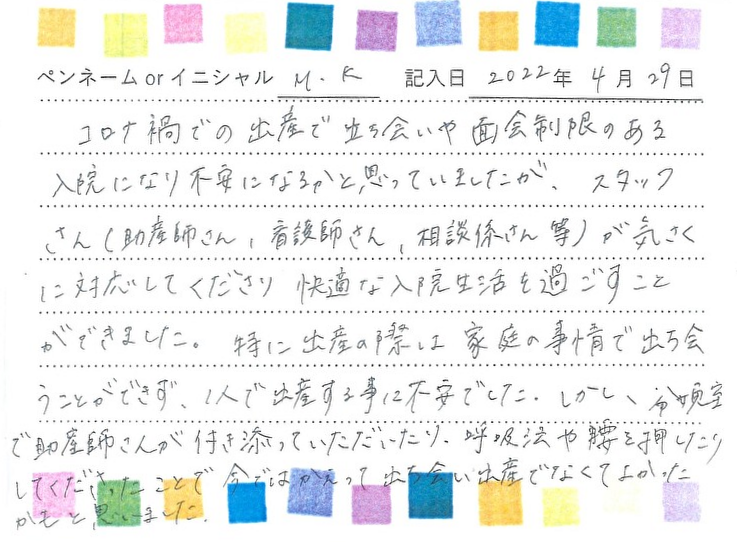 ペンネーム or イニシャル M.K 記入日 2022年 4月 29日
コロナ禍での出産で立ち会いや面会制限のある
入院になり不安になるかと思っていましたが、スタッフ
さん(助産師さん,看護師さん,相談係さん等)が気さく
に対応してくださり快適な入院生活を過ごすこと
ができました。特に出産の際は家庭の事情で立ち会
うことができず、1人で出産する事に不安でした。しかし、分娩室
で助産師さんが付き添っていただいたり、呼吸法や腰を押したり
してくださったことで今ではかえって立ち会い出産でなくてよかった
かもと思いました.